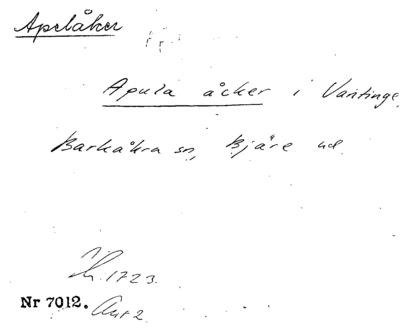 Apelåker
Apula åcker i Vantinge,
Barkåkra sn, Bjäre hd.
Jb. 1723.
Nr 7012. Ant 2